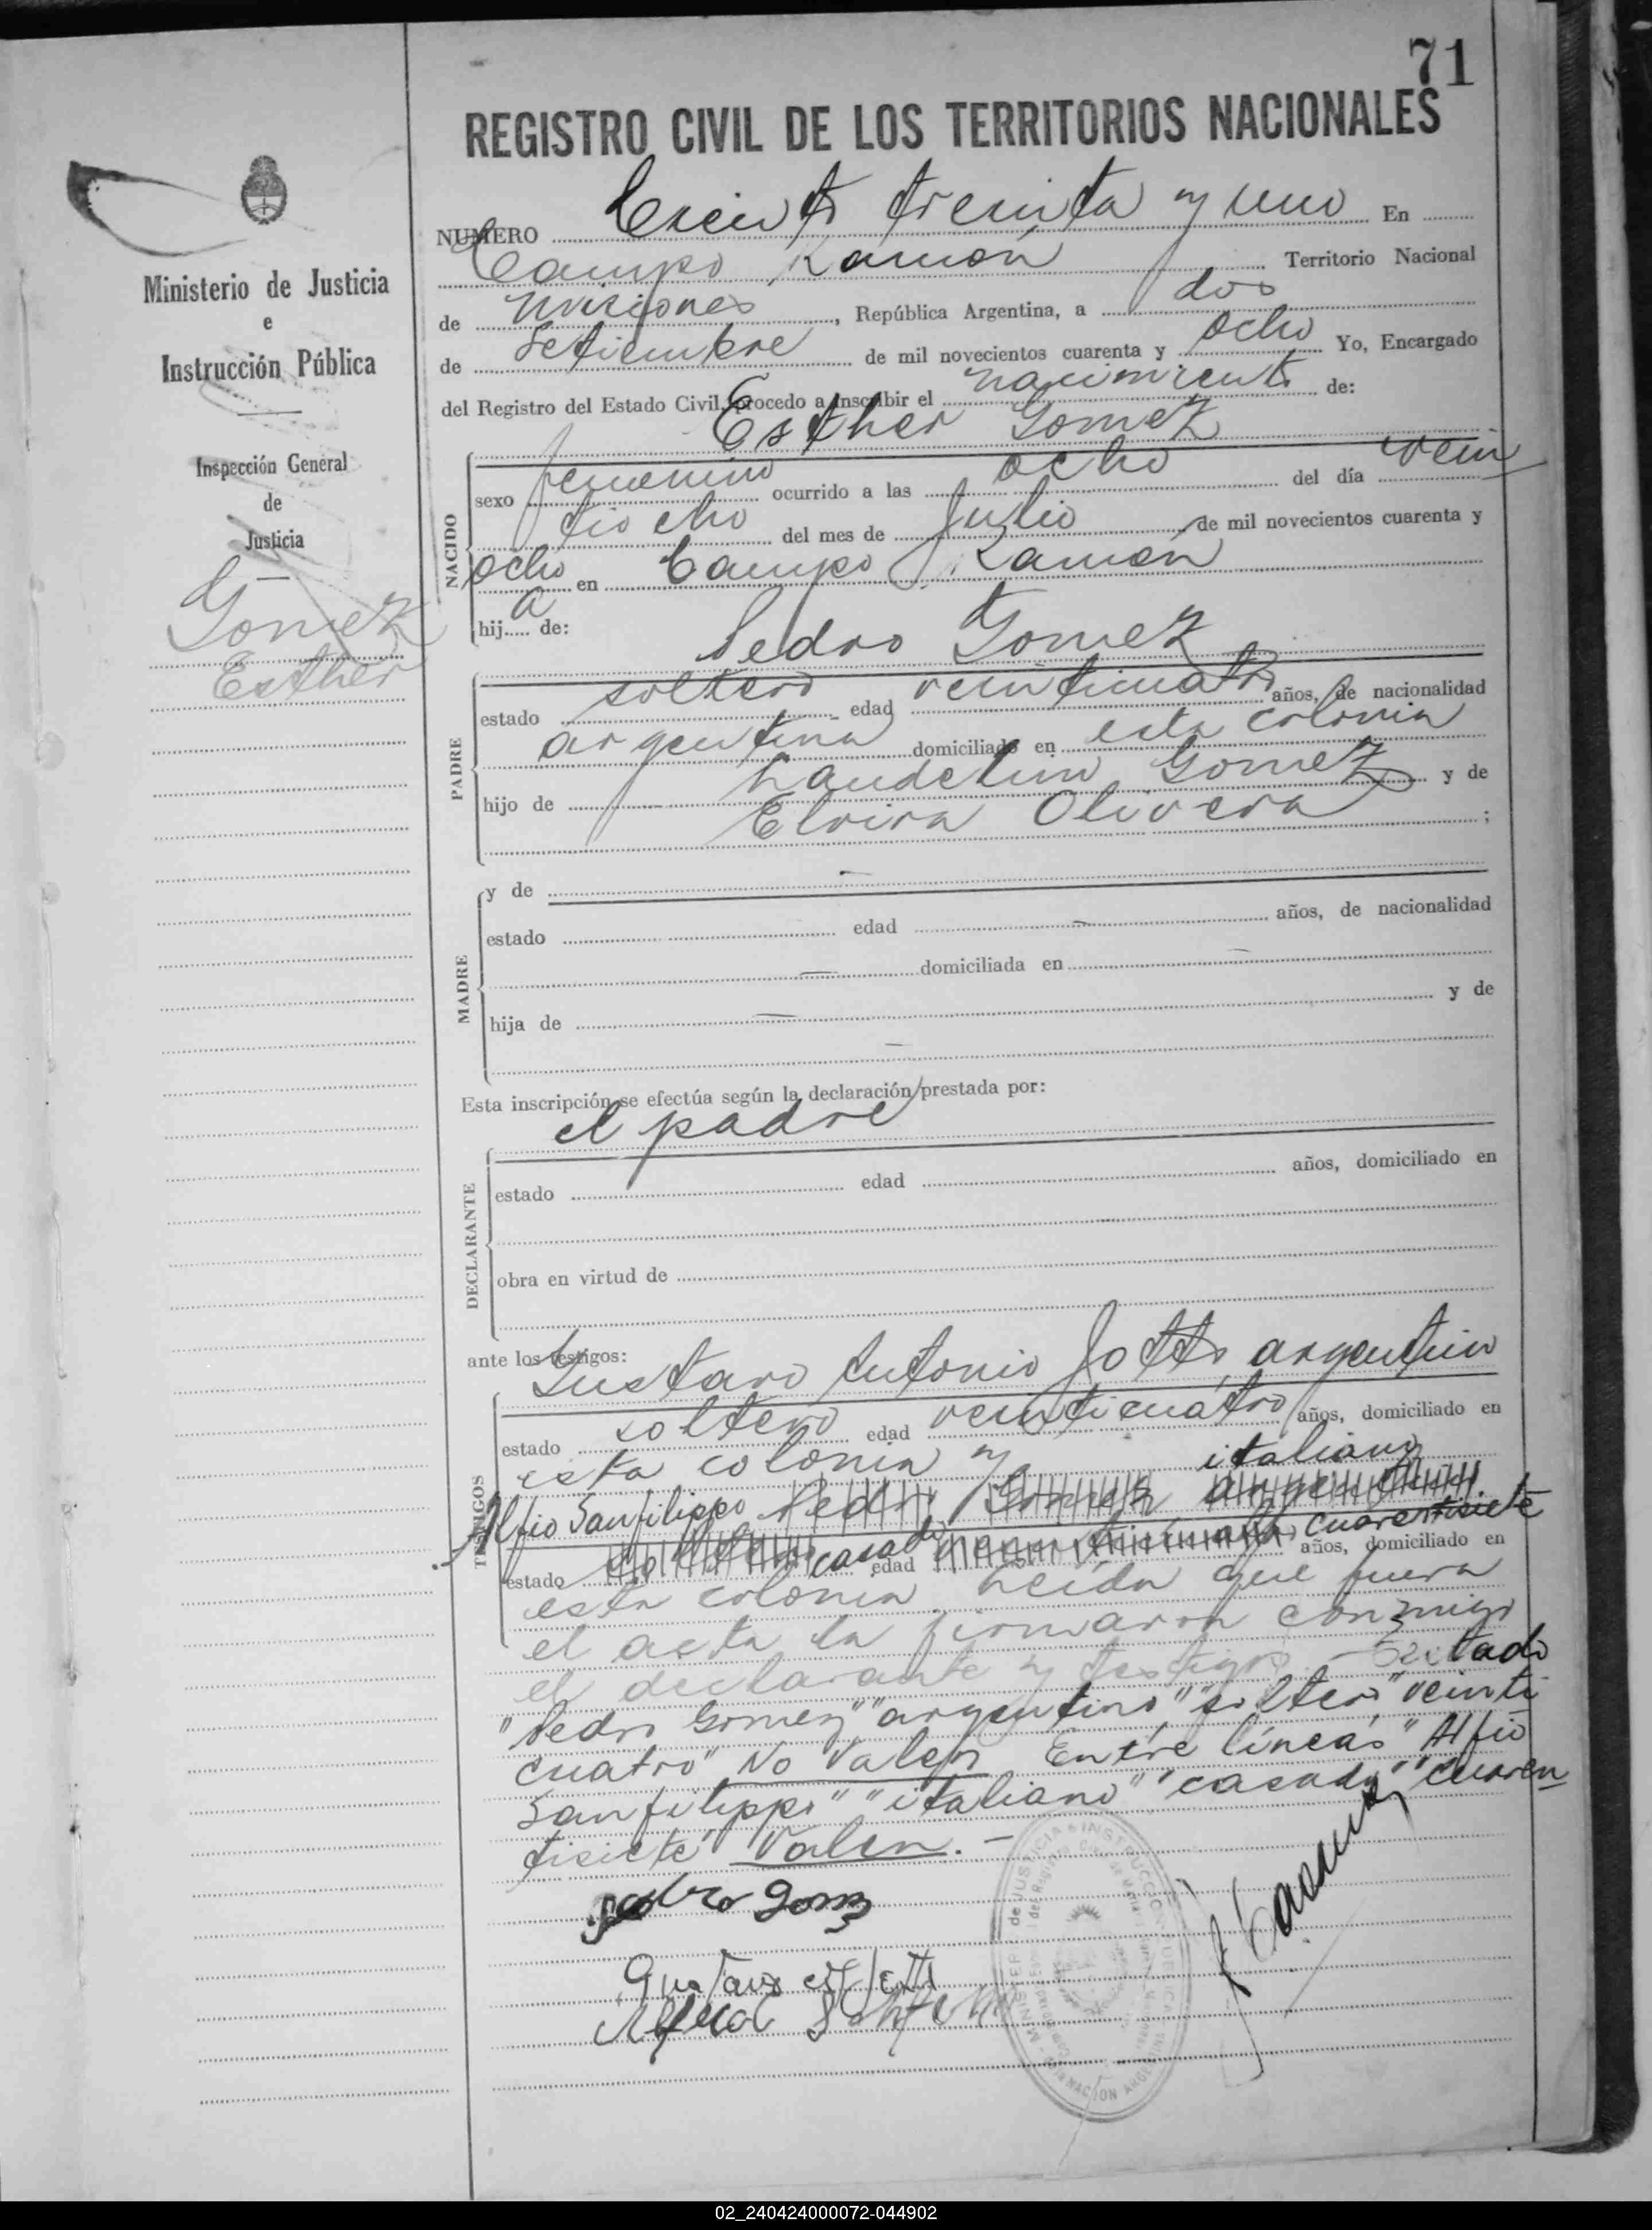 71
REGISTRO CIVIL DE LOS TERRITORIOS NACIONALES
Ministerio de Justicia
e
Instrucción Pública
Inspección General
de
Justicia
Gomez
Esther
NUMERO Ciento treinta y uno En
Campo Ramón Territorio Nacional
de Misiones, República Argentina, a dos
de Setiembre de mil novecientos cuarenta y ocho Yo, Encargado
del Registro del Estado Civil, procedo a inscribir el nacimiento de:
Esther Gomez
NACIDO
sexo femenino ocurrido a las ocho del día vein
tiocho del mes de Julio de mil novecientos cuarenta y
ocho en Campo Ramón
hija de:
Pedro Gomez
PADRE
estado soltero edad veinticuatro años, de nacionalidad
argentina domiciliado en esta colonia
hijo de Laudelino Gomez y de
Elvira Olivera;
MADRE
y de —
estado edad — años, de nacionalidad
— domiciliada en —
hija de — y de
—
Esta inscripción se efectúa según la declaración prestada por:
el padre
DECLARANTE
estado edad años, domiciliado en
obra en virtud de
ante los testigos:
Gustavo Antonio argentino
TESTIGOS
estado soltero edad veinticuatro años, domiciliado en
esta colonia y italiano
Alfio Sanfilippo Pedro Gomez argentino
estado soltero casado edad veinticuatro cuarentisiete años, domiciliado en
esta colonia. Leída que fuera
el acta la firmaron conmigo
el declarante y testigos. — Testado
"Pedro Gomez" "argentino" "soltero" "veinti
cuatro" No Valen Entre líneas "Alfio
Sanfilippo" "italiano" "casado" "cuaren
tisiete" Valen. —
pedro gomz
Gustavo
MINISTERIO de JUSTICIA e INSTRUCCION PUBLICA
NACION ARGENTINA
02_240424000072-044902